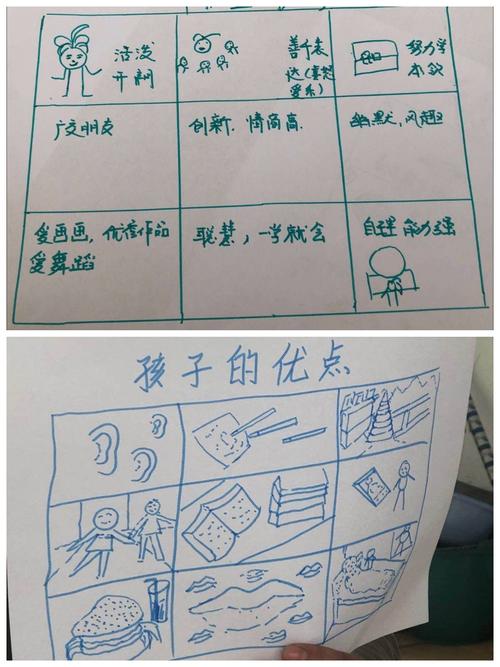 活泼
开朗
善于表
达(喜怒
爱乐)
努力学
本领
广交朋友
创新.情商高.
幽默,风趣
爱画画,优秀作品
爱舞蹈
聪慧,一学就会
自理能力强
孩子的优点